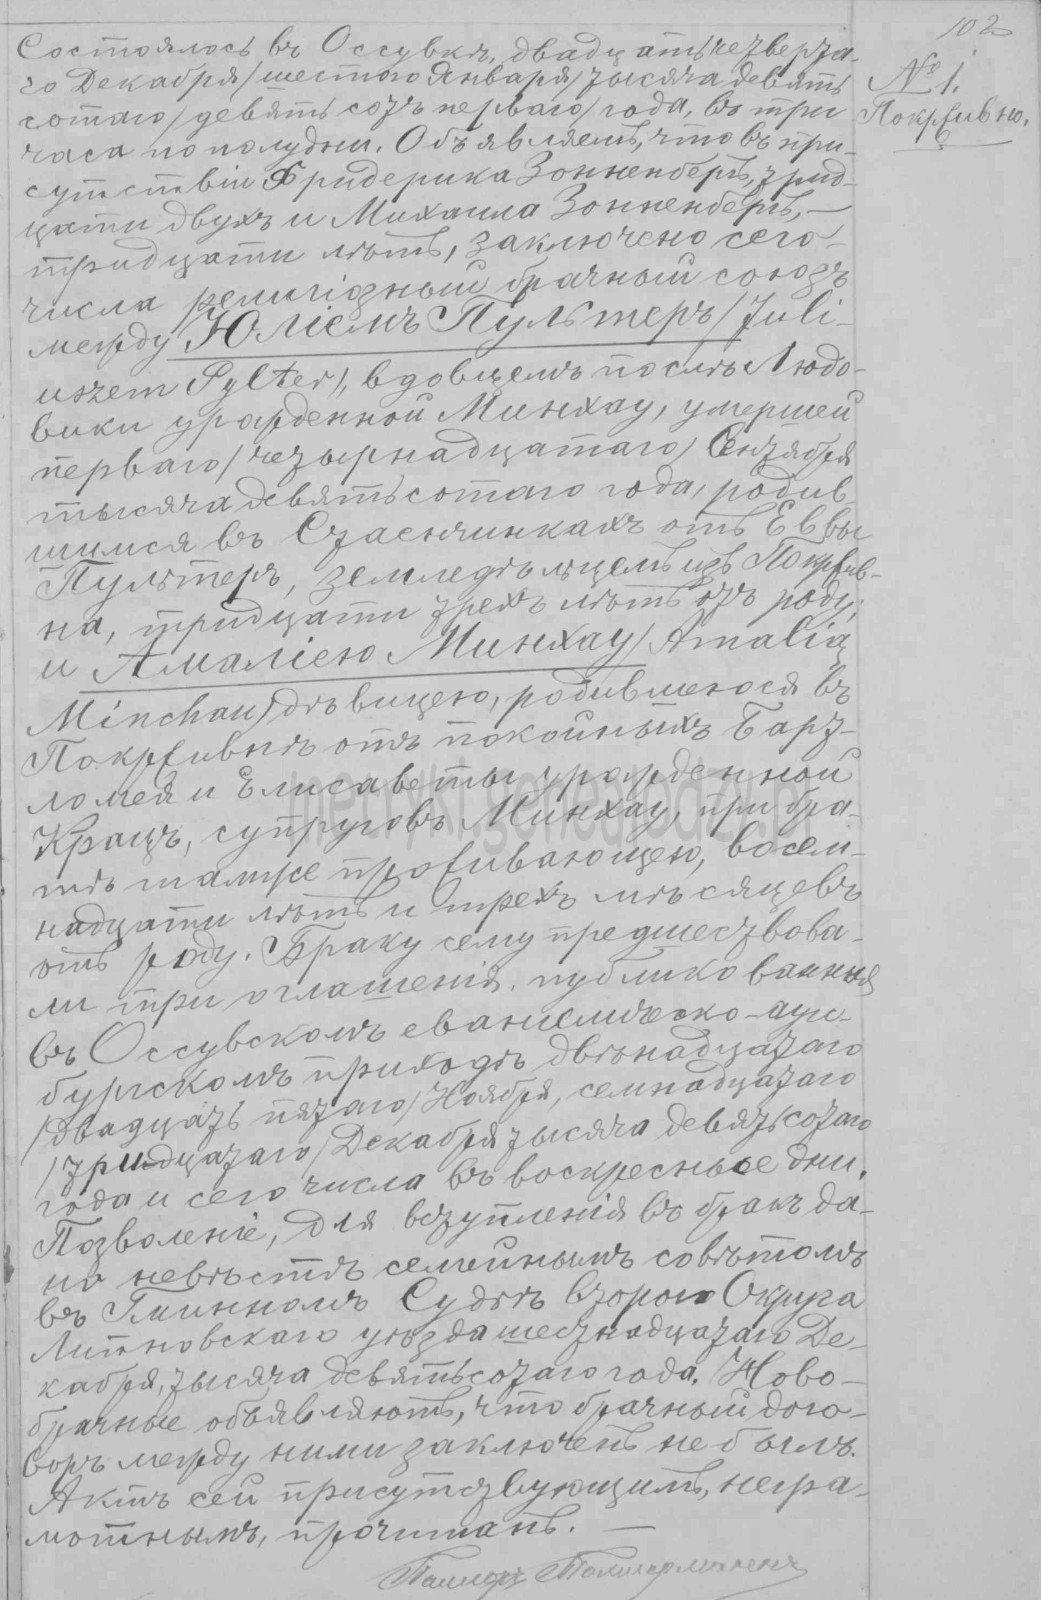 102
№ 1.
Покрѣивно.
Состоялось въ Оссувкѣ, двадцать четверта-
го Декабря /шестого Января/ тысяча девять
сотаго /девять сотъ перваго/ года, въ три
часа по полудни. Объявляемъ, что въ при-
сутствіи Фридерика Зонненбергъ, трид-
цати двухъ и Михаила Зонненбергъ, —
тридцати лѣтъ, заключено сего
числа религіозный брачный союзъ
между Юліемъ Пультеръ /Juli-
uszem Pylter/, вдовцемъ послѣ Людо-
вики урожденной Минхау, умершей
перваго /четырнадцатаго/ Сентября
тысяча девятьсотаго года, родив-
шимся въ Стасючинкахъ отъ Еввы
Пультеръ, земледѣльцемъ изъ Покржив-
на, тридцати трехъ лѣтъ отъ роду;
и Амаліею Минхау /Amalią
Minchau/ дѣвицею, родившеюся въ
Покрживнѣ отъ покойныхъ Барт-
ломея и Елисаветы урожденной
Крацъ, супруговъ Минхау, при бра-
тѣ тамже проживающею, восем-
надцати лѣтъ и трехъ мѣсяцевъ
отъ роду. Браку сему предшествова-
ли три оглашенія, публикованныя
въ Оссувскомъ евангелическо-аугс-
бургскомъ приходѣ двѣнадцатаго
/двадцать пятаго/ Ноября, семнадцатаго
/тридцатаго/ Декабря тысяча девятьсотаго
года и сего числа въ воскресные дни.
Позволеніе, для вступленія въ бракъ да-
но невѣстѣ семейнымъ совѣтомъ
въ Гминномъ Судѣ Второго Округа
Липновскаго уѣзда шестнадцатаго Де-
кабря, тысяча девятьсотаго года. Ново-
брачные объявляютъ, что брачный дого-
воръ между ними заключенъ не былъ.
Актъ сей присутствующимъ, негра-
мотнымъ, прочитанъ. —
metryki.genealodzy.pl